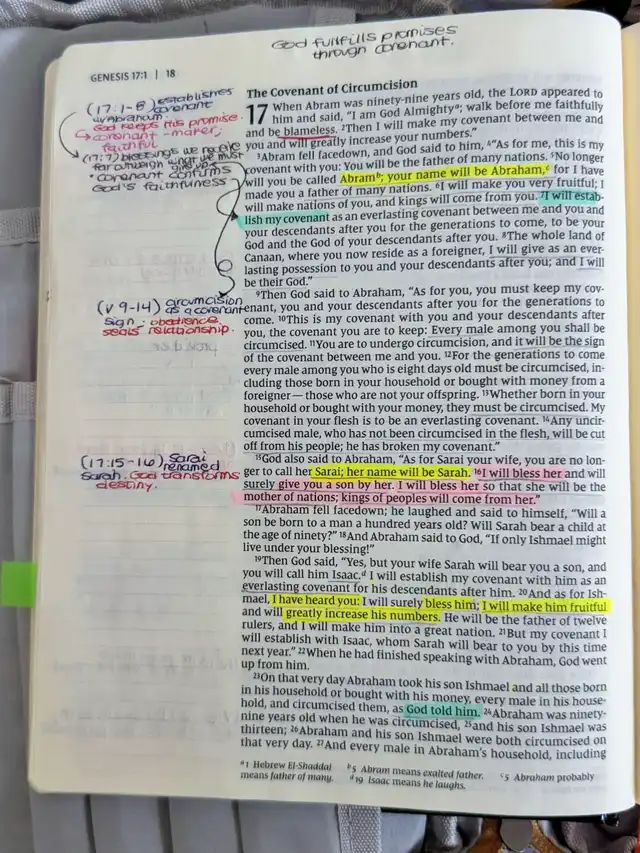 God fulfills promises
through covenant.
GENESIS 17:1 | 18
(17:1-8) establishes
covenant
w/Abraham.
God keeps His promise
covenant-maker,
faithful
(17:7) blessings we receive
• covenant confirms
God's faithfulness
(v 9-14) circumcision
as a covenant
sign; obedience
seals relationship.
(17:15-16) Sarai
renamed
Sarah. God transforms
destiny.
The Covenant of Circumcision
17 When Abram was ninety-nine years old, the LORD appeared to
him and said, “I am God Almighty a; walk before me faithfully
and be blameless. 2Then I will make my covenant between me and
you and will greatly increase your numbers.”
3Abram fell facedown, and God said to him, 4“As for me, this is my
covenant with you: You will be the father of many nations. 5No longer
will you be called Abram b; your name will be Abraham, c for I have
made you a father of many nations. 6I will make you very fruitful; I
will make nations of you, and kings will come from you. 7I will estab-
lish my covenant as an everlasting covenant between me and you and
your descendants after you for the generations to come, to be your
God and the God of your descendants after you. 8The whole land of
Canaan, where you now reside as a foreigner, I will give as an ever-
lasting possession to you and your descendants after you; and I will
be their God.”
9Then God said to Abraham, “As for you, you must keep my cov-
enant, you and your descendants after you for the generations to
come. 10This is my covenant with you and your descendants after
you, the covenant you are to keep: Every male among you shall be
circumcised. 11You are to undergo circumcision, and it will be the sign
of the covenant between me and you. 12For the generations to come
every male among you who is eight days old must be circumcised, in-
cluding those born in your household or bought with money from a
foreigner — those who are not your offspring. 13Whether born in your
household or bought with your money, they must be circumcised. My
covenant in your flesh is to be an everlasting covenant. 14Any uncir-
cumcised male, who has not been circumcised in the flesh, will be cut
off from his people; he has broken my covenant.”
15God also said to Abraham, “As for Sarai your wife, you are no lon-
ger to call her Sarai; her name will be Sarah. 16I will bless her and will
surely give you a son by her. I will bless her so that she will be the
mother of nations; kings of peoples will come from her.”
17Abraham fell facedown; he laughed and said to himself, “Will a
son be born to a man a hundred years old? Will Sarah bear a child at
the age of ninety?” 18And Abraham said to God, “If only Ishmael might
live under your blessing!”
19Then God said, “Yes, but your wife Sarah will bear you a son, and
you will call him Isaac. d I will establish my covenant with him as an
everlasting covenant for his descendants after him. 20And as for Ish-
mael, I have heard you: I will surely bless him; I will make him fruitful
and will greatly increase his numbers. He will be the father of twelve
rulers, and I will make him into a great nation. 21But my covenant I
will establish with Isaac, whom Sarah will bear to you by this time
next year.” 22When he had finished speaking with Abraham, God went
up from him.
23On that very day Abraham took his son Ishmael and all those born
in his household or bought with his money, every male in his house-
hold, and circumcised them, as God told him. 24Abraham was ninety-
nine years old when he was circumcised, 25and his son Ishmael was
thirteen; 26Abraham and his son Ishmael were both circumcised on
that very day. 27And every male in Abraham’s household, including
a 1 Hebrew El-Shaddai b 5 Abram means exalted father. c 5 Abraham probably
means father of many. d 19 Isaac means he laughs.